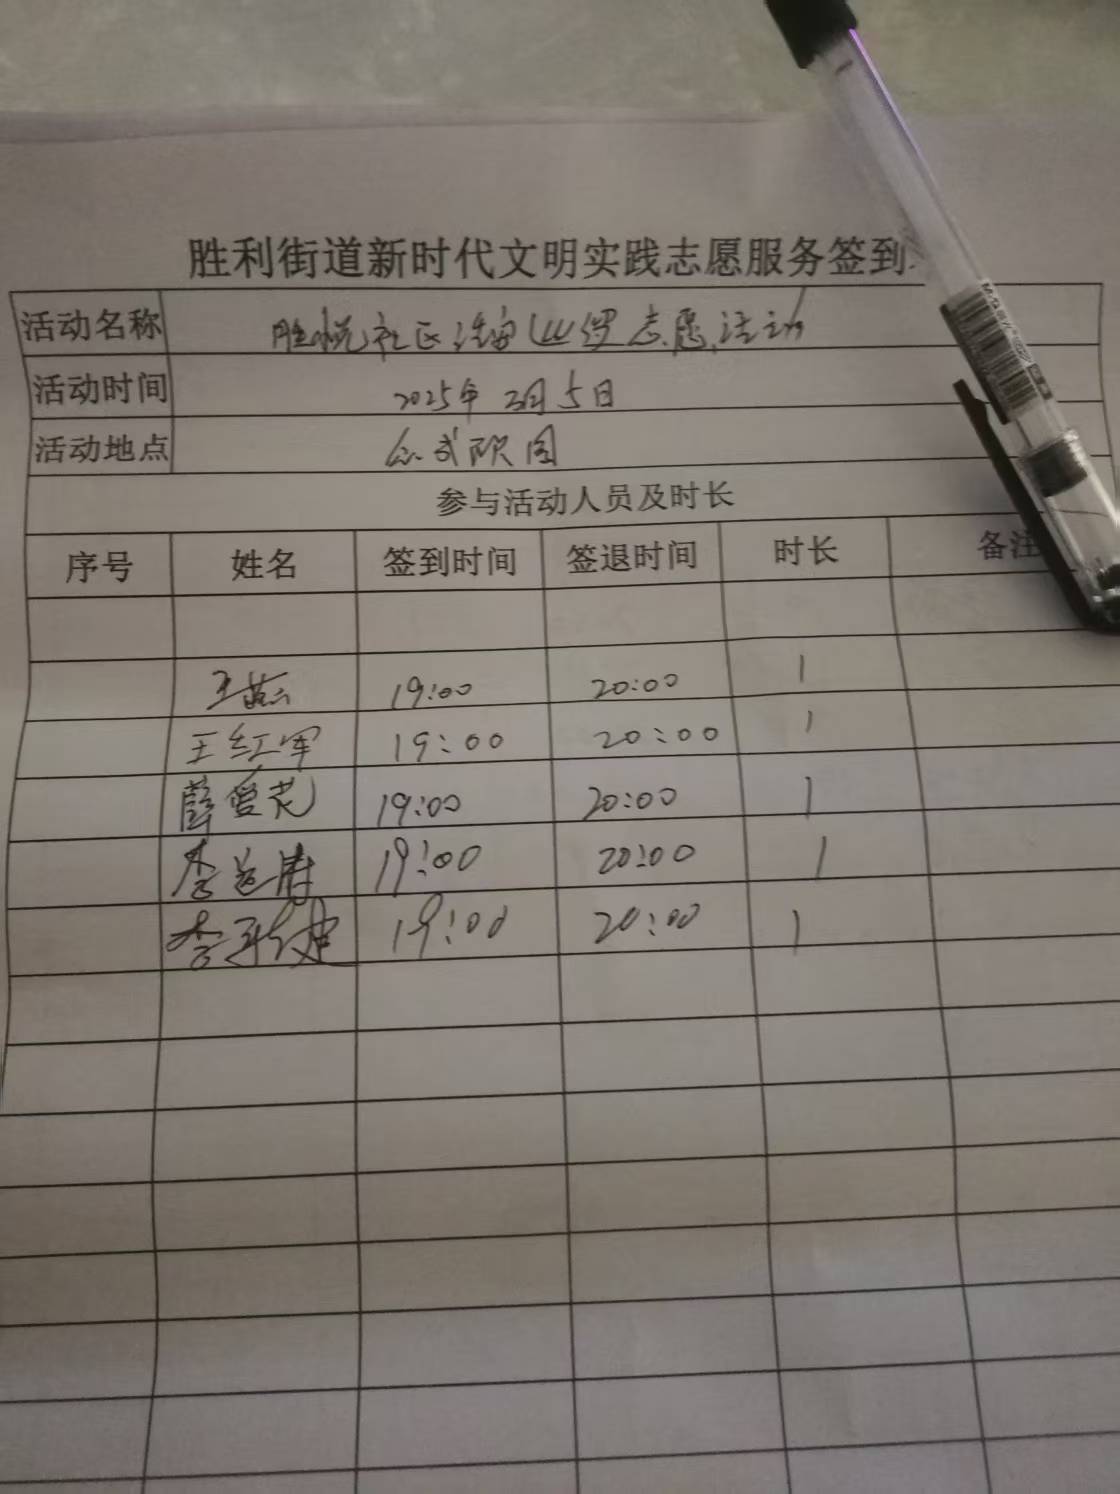 胜利街道新时代文明实践志愿服务签到
活动名称 胜悦社区 志愿活动
活动时间 2025年3月5日
活动地点
参与活动人员及时长
序号 姓名 签到时间 签退时间 时长 备注
王燕 19:00 20:00 1
王红军 19:00 20:00 1
薛爱花 19:00 20:00 1
李 19:00 20:00 1
李 建 19:00 20:00 1